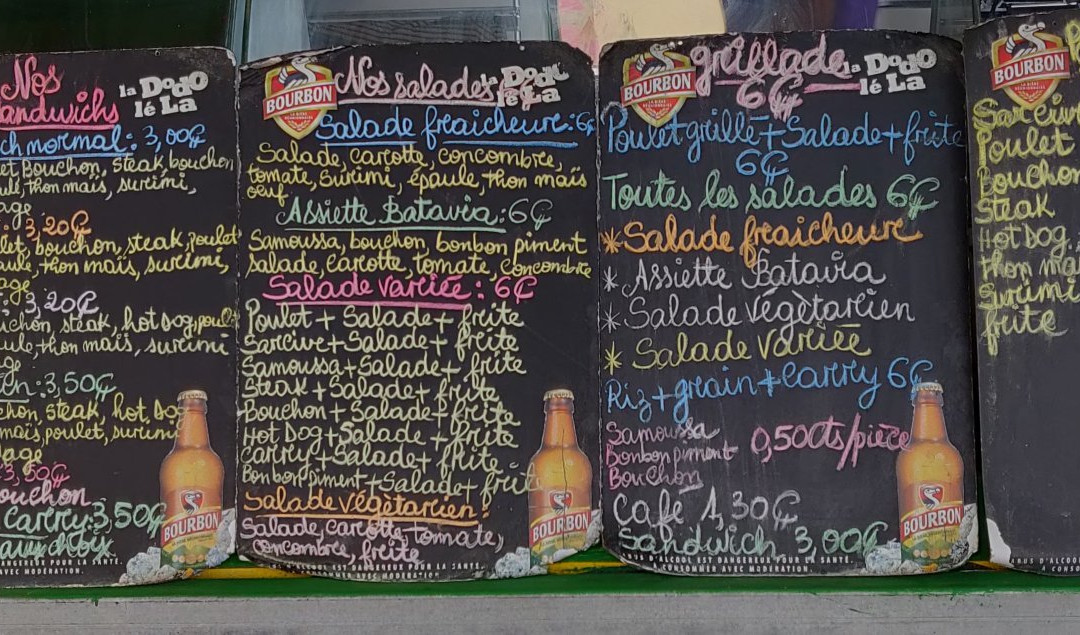 Nos
andwichs
la DODO
lé La
ch normal: 3,00€
et Bouchon, steak bouchon
ule, thon maïs, surimi,
age
3,20€
let, bouchon, steak, poulet
aule, thon maïs, surimi,
age
3,20€
ichon, steak, hot dog, poul
ule, thon maïs, surimi
ge
en: 3,50€
chon, steak, hot do
maïs, poulet, surimi
lage
3,50€
ouchon
carry: 3,50€
aux choix
BOURBON
ANGEREUX POUR LA SANTÉ.
AVEC MODÉRATION.
BOURBON
LA BIÈRE RÉUNIONNAISE
Nos salades
la DODO
lé La
Salade fraicheure: 6€
Salade, carotte, concombre,
tomate, surimi, épaule, thon maïs
oeuf
Assiette Batavia: 6€
Samoussa, bouchon, bonbon piment
salade, carotte, tomate, concombre
Salade variée: 6€
Poulet + Salade + frite
Sarcive + Salade + frite
Samoussa + Salade + frite
Steak + Salade + frite
Bouchon + Salade + frite
Hot Dog + Salade + frite
Carry + Salade + frite
Bonbon piment + Salade + frite
Salade végètarien:
Salade, carotte, tomate,
concombre, frite
BOURBON
DANGEREUX POUR LA SANTÉ.
MODÉRATION.
BOURBON
LA BIÈRE RÉUNIONNAISE
grillade
6€
la DODO
lé La
Poulet grillé + Salade + frite
6€
Toutes les salades 6€
*Salade fraicheure
*Assiette Batavia
*Salade végètarien
*Salade variée
Riz + grain + carry 6€
Samoussa
Bonbon piment 0,50cts/pièce
Bouchon
Café 1,30€
Sandwich 3,00€
BOURBON
ALCOOL EST DANGEREUX POUR LA SANTÉ.
AVEC MODÉRATION.
BOURBON
LA BIÈRE RÉUNIONNAISE
Sarcive
Poulet
Bouchon
Steak
Hot Dog,
thon maï
Surimi
frite
BUS D'ALCOO
À CONSO